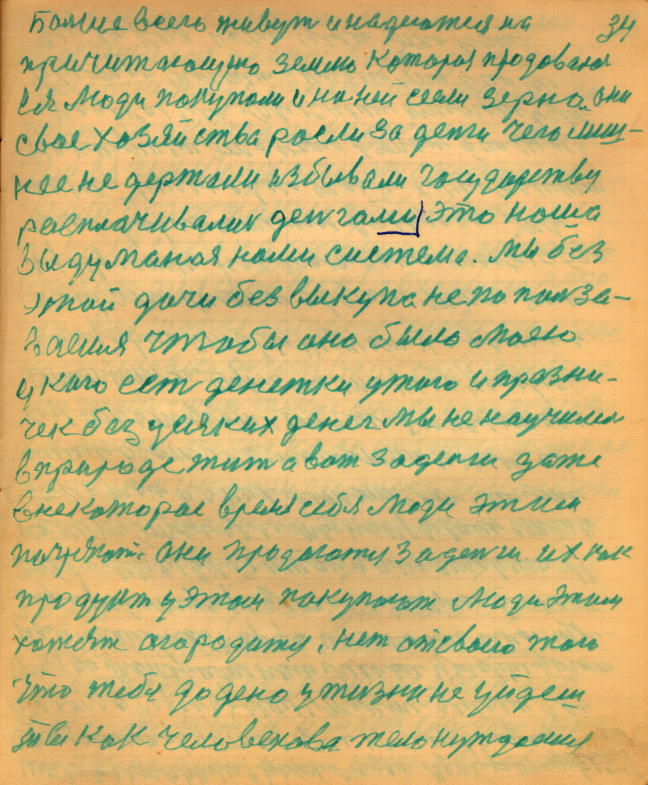 Болие всего живут и надеются на 34
причитающую землю которая продовала
ся Люди покупали и на ней сеяли зерно. они
свое хозяйства росли за деньги чего лиш-
нее не держали избывали государству
расплачивалис деньгами это наша
выдуманая нами система. Мы без
этой дачи без выкупа не пользо-
вания чтобы оно было моею
у кого ест денежки у того и празни-
чек без усяких денег мы не научилис
в природе жит а вот за деньги даже
в некоторое время себя люди этим
они продаются за деньги их как
продукт у этом покупают Люди этим
хотят огородится. нет от своего того
что тебе дадено у жизни не уйдеш
как человекова тело нуждается